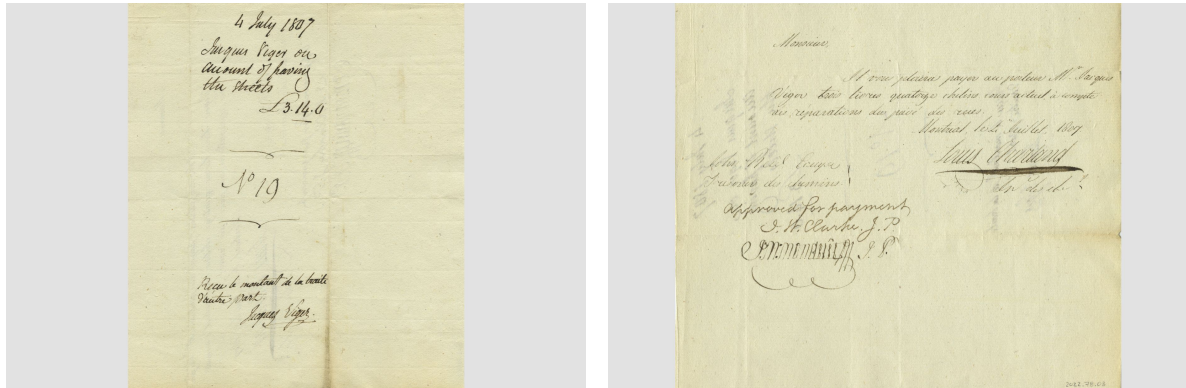 4 July 1807
Jacques Viger on
account of paving
the streets
£3.14.0
No 19
Recu le montant de la traite
d'autre part
Jacques Viger
Monsieur,
Il vous plaira payer au porteur Mr. Jacques
Viger trois livres quatorze chelins cours actuel à compte
des réparations des pavé des rues.
Montréal, le 4 Juillet, 1807
Louis Charland
John
Trésorier des chemins
Approved for payment
J. P.
J. P.
2012.70.08